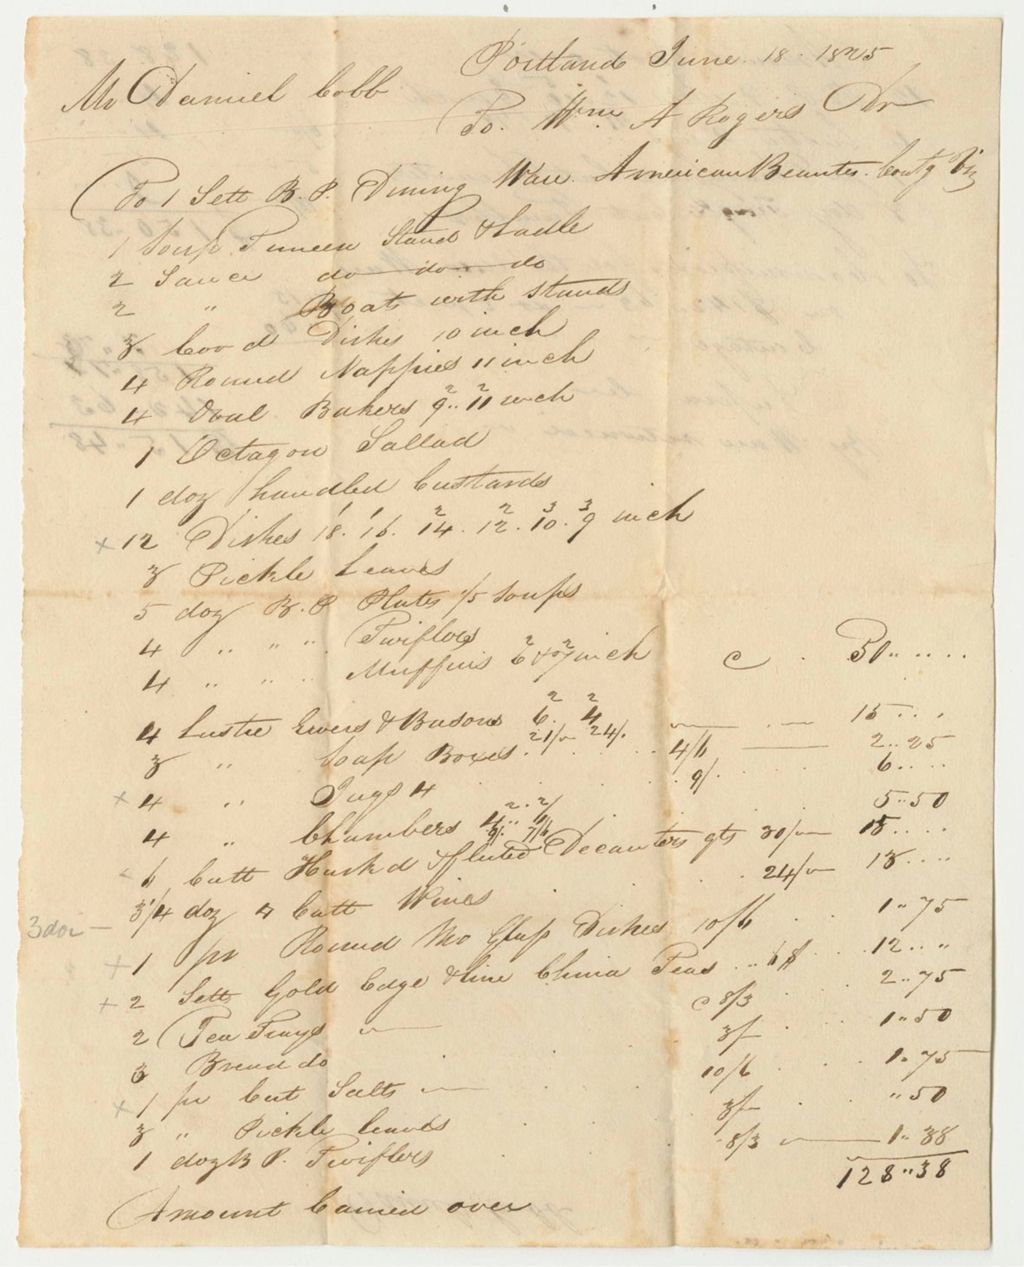 Portland June 18. 1825
Mr Daniel Cobb
To. Wm. A Rogers Dr
To 1 Sett B. P. Dining Ware. American Beauties. Contg Viz
1 Soup Tureen Stand & Ladle
2 Sauce do do do
2 " Boat with stands
3 Cov d Dishes 10 inch
4 Round Nappies 11 inch
4 Oval Bakers 2 9.. 2 11 inch
1 Octagon Sallad
1 doz handled Custards
x 12 Dishes 1 18. 1 16. 2 14. 2 12. 3 10. 3 9 inch
3 Pickle Leaves
5 doz B. P. Plates 1/5 Soups
4 " " " Twiflers
4 " " " Muffins 2 6 & 2 7 inch c . 50 .. ..
4 Lustre Ewers & Basons 2 6. 2 4 21/ 24/. 15 ....
3 " Soap Boxes 4/6 2 .. 25
x 4 " Jugs 4 9/. 6 ....
4 " Chambers 2 4 .. 2 6/ 9/. 7/6 5 .. 50
6 Cutt Husk d & fluted Decanters qts 30/ 15 ....
3 doz 3 1/4 doz Cutt Wines 24/ 13 ....
x 1 pr Round Mo Glass Dishes 10/6 1 .. 75
x 2 Setts Gold Edge & line China Teas .. 6$ 12 .. "
2 Tea Trays c 8/3 2 .. 75
3 Bread do 3/ 1 .. 50
x 1 pr Cut Salts 10/6 1 .. 75
3 " Pickle leaves 3/ " 50
1 doz B P. Twiflers 8/3 1 .. 38
128 .. 38
Amount Carried over